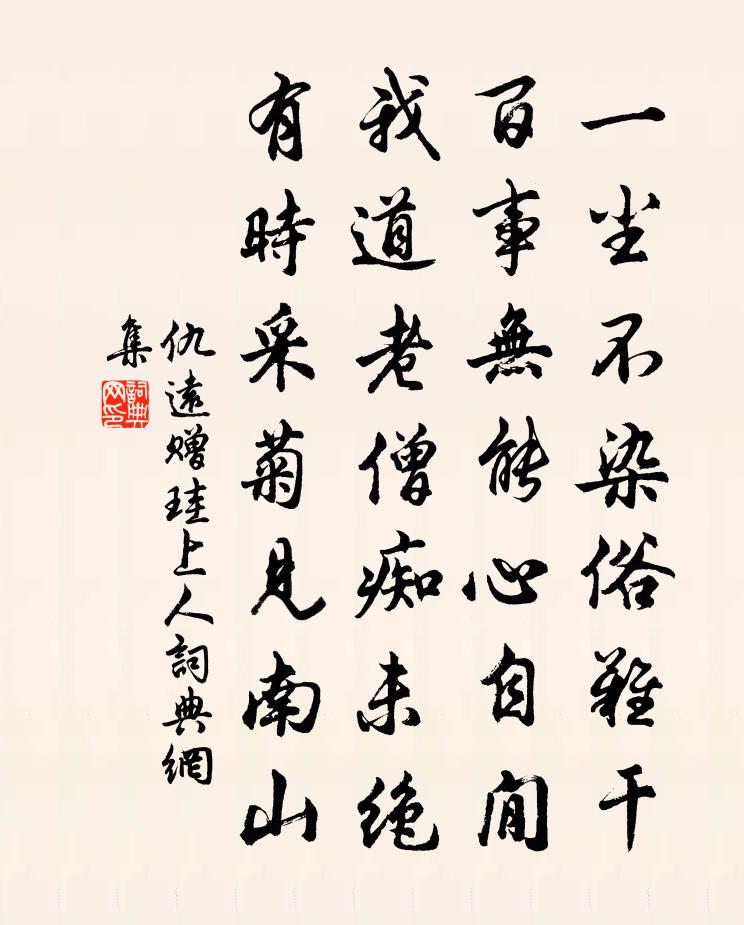 一尘不染俗難干
百事無能心自閒
我道老僧痴未絶
有時采菊見南山
仇遠赠珪上人詞典網
集
詞典网印